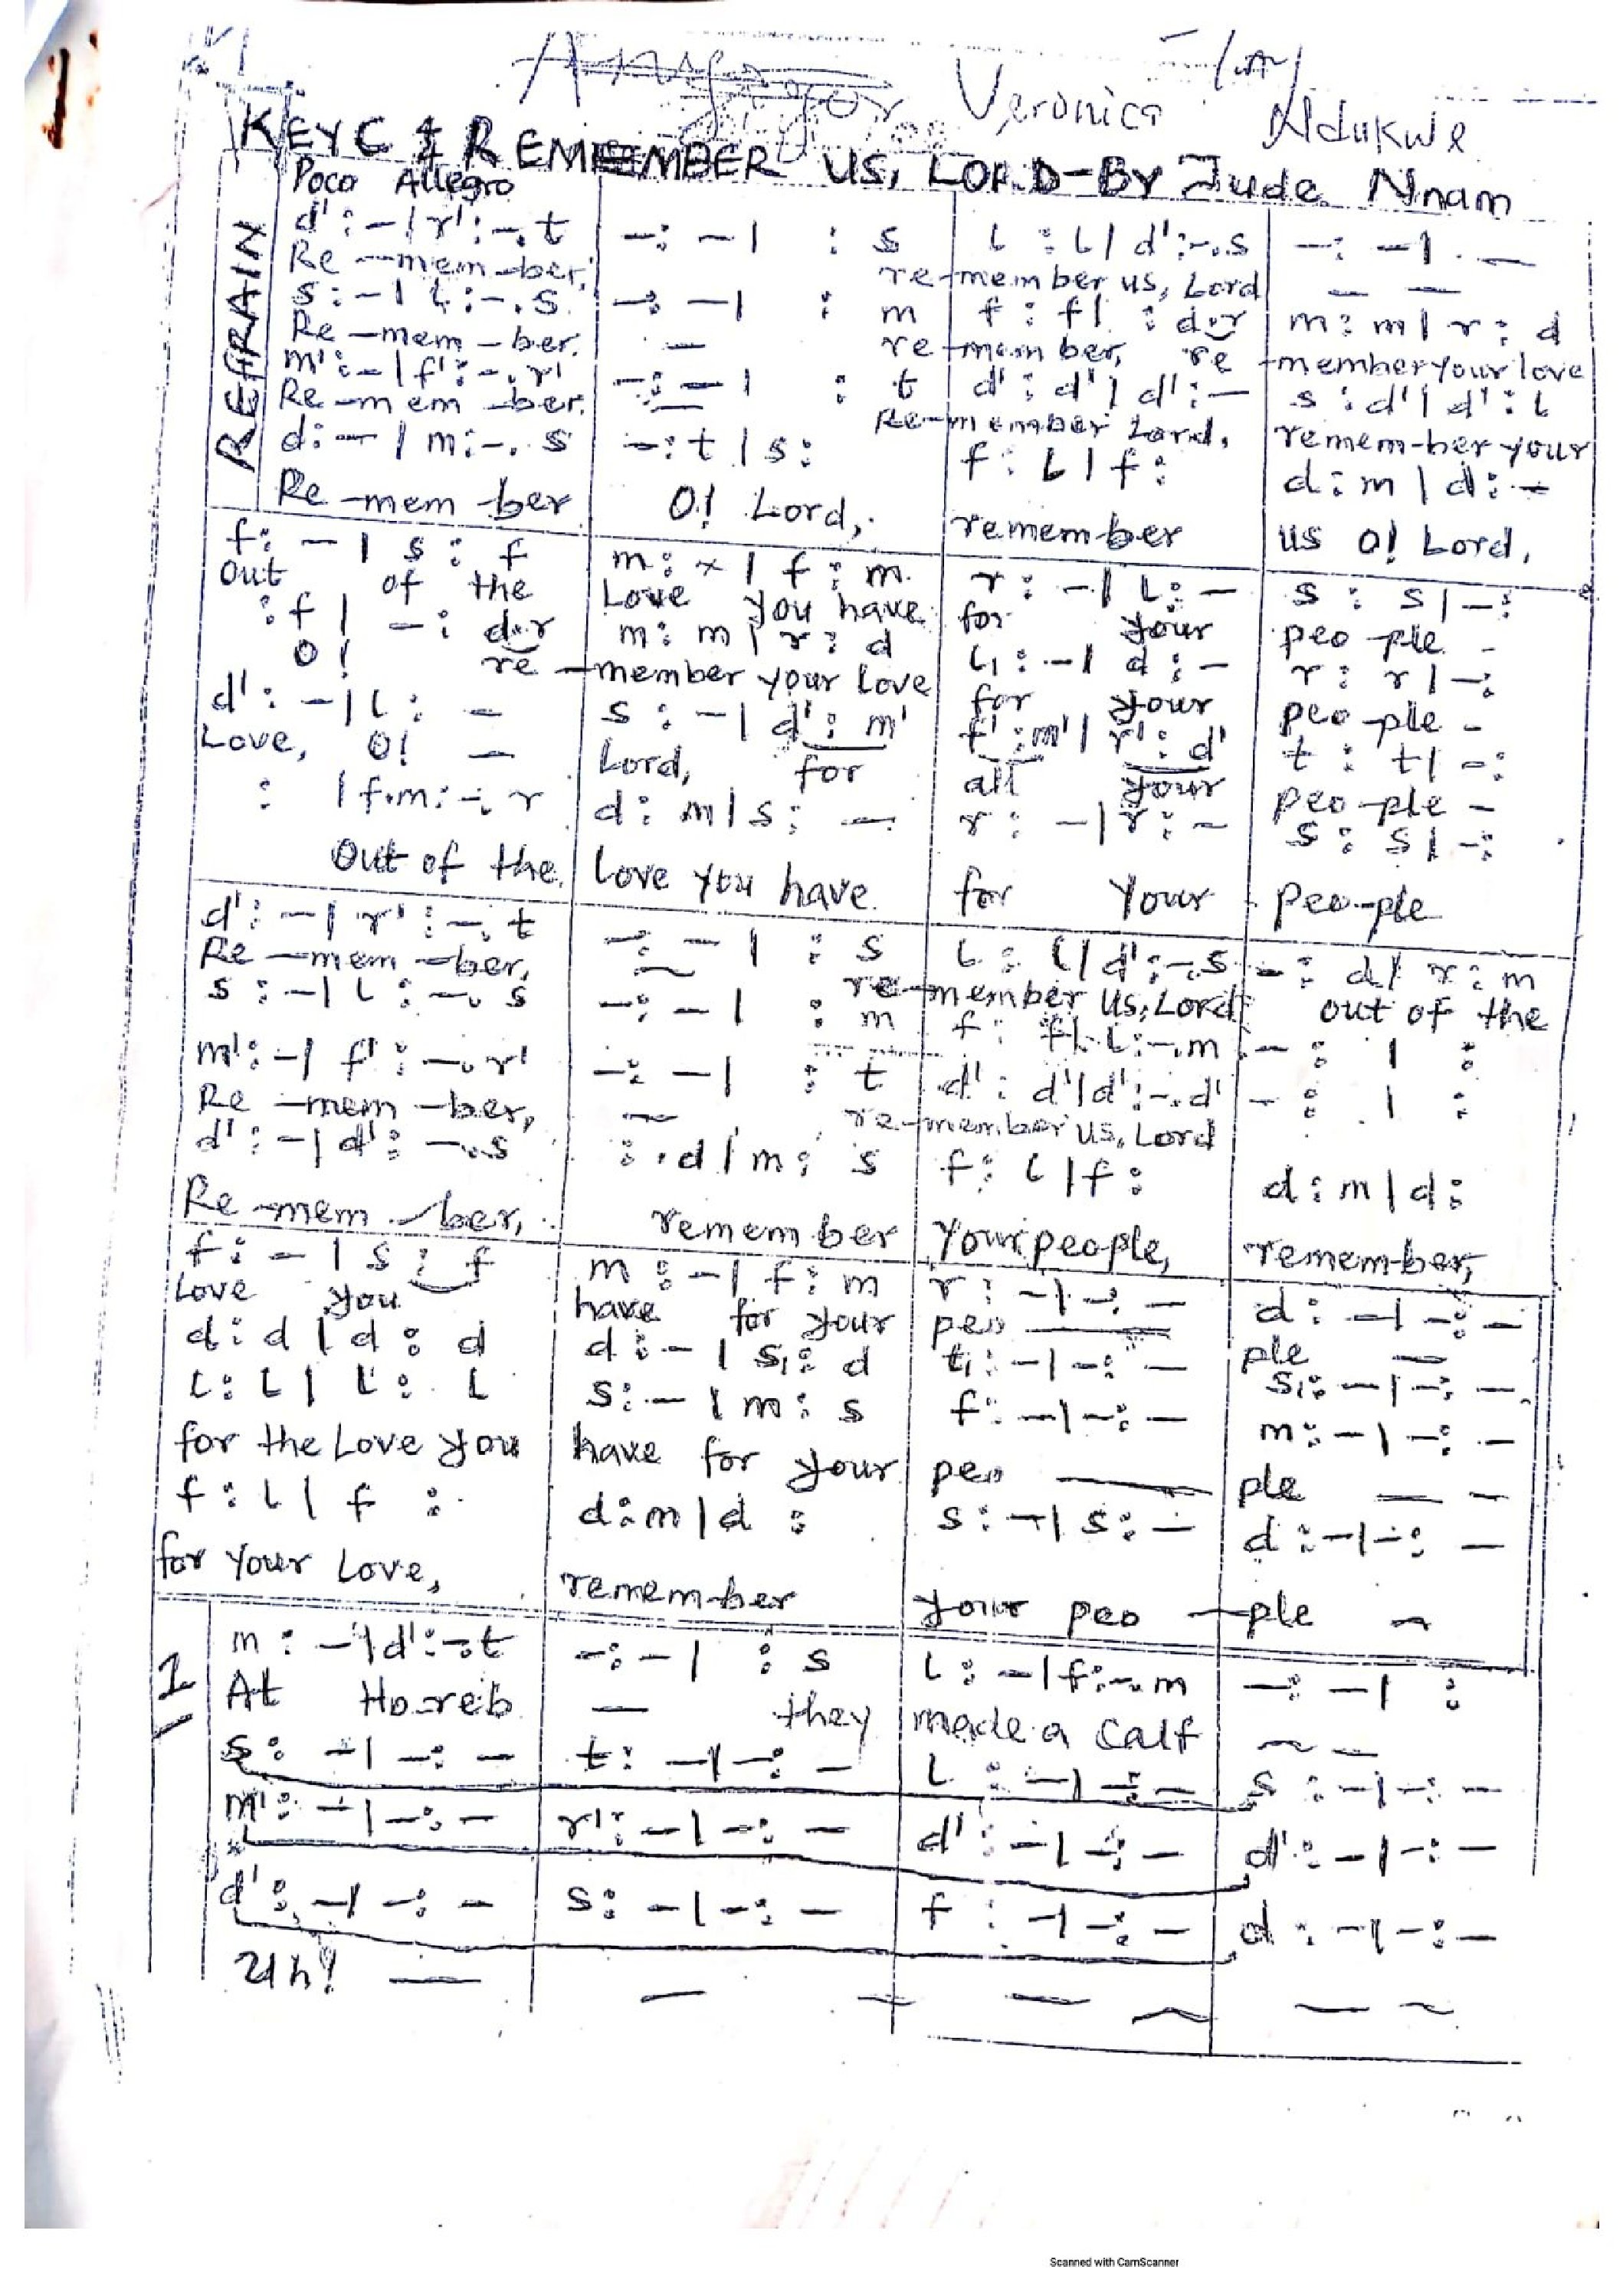 Veronica Ndukwe
KEY C REMEMBER US, LORD-BY Jude Nnam
Poco Allegro
REFRAIN
d' : - | r' : -. t | - : - | : s | l : l | d' : -. s | - : - | . -
Re - mem - ber, re - member us, Lord - -
s : - | l : -. s | - : - | : m | f : f | : d.r | m : m | r : d
Re - mem - ber. - re - mem ber, re - member your love
m' : - | f' : -. r' | - : - | : t | d' : d' | d' : - | s : d' | d' : l
Re - mem - ber. Re - member Lord, remem-ber your
d : - | m : -. s | - : t | s : | f : l | f : | d : m | d : -
Re - mem - ber O! Lord, remember us O! Lord,
f : - | s : f | m : x | f : m | r : - | l : - | s : s | - :
Out of the Love you have for your peo - ple -
: f | - : d.r | m : m | r : d | l₁ : - | d : - | r : r | - :
O! re - member your Love for your peo - ple -
d' : - | l : - | s : - | d' : m' | f' : m' | r' : d' | t : t | - :
Love, O! - Lord, for all your peo - ple -
: | f.m : -. r | d : m | s : - | r : - | r : - | s : s | - :
Out of the love you have for your peo - ple
d' : - | r' : -. t | - : - | : s | l : l | d' : -. s | - : d | r : m
Re - mem - ber, re - member us, Lord out of the
s : - | l : -. s | - : - | : m | f : f | l : -. m | - : | :
m' : - | f' : -. r' | - : - | : t | d' : d' | d' : -. d' | - : | :
Re - mem - ber, re - member us, Lord
d' : - | d' : -. s | : . d | m : s | f : l | f : | d : m | d :
Re - mem - ber, remember your people, remem-ber,
f : - | s : f | m : - | f : m | r : - | - : - | d : - | - : -
Love you have for your peo ple -
d : d | d : d | d : - | s₁ : d | t₁ : - | - : - | s₁ : - | - : -
l : l | l : l | s : - | m : s | f : - | - : - | m : - | - : -
for the Love you have for your peo ple - -
f : l | f : | d : m | d : | s : - | s : - | d : - | - : -
for your Love, remem-ber your peo - ple -
1
m : - | d' : -. t | - : - | : s | l : - | f : -. m | - : - | :
At Ho-reb - they made a Calf - -
s : - | - : - | t : - | - : - | l : - | - : - | s : - | - : -
m' : - | - : - | r' : - | - : - | d' : - | - : - | d' : - | - : -
d' : - | - : - | s : - | - : - | f : - | - : - | d : - | - : -
Uh! - - - - - - -
Scanned with CamScanner